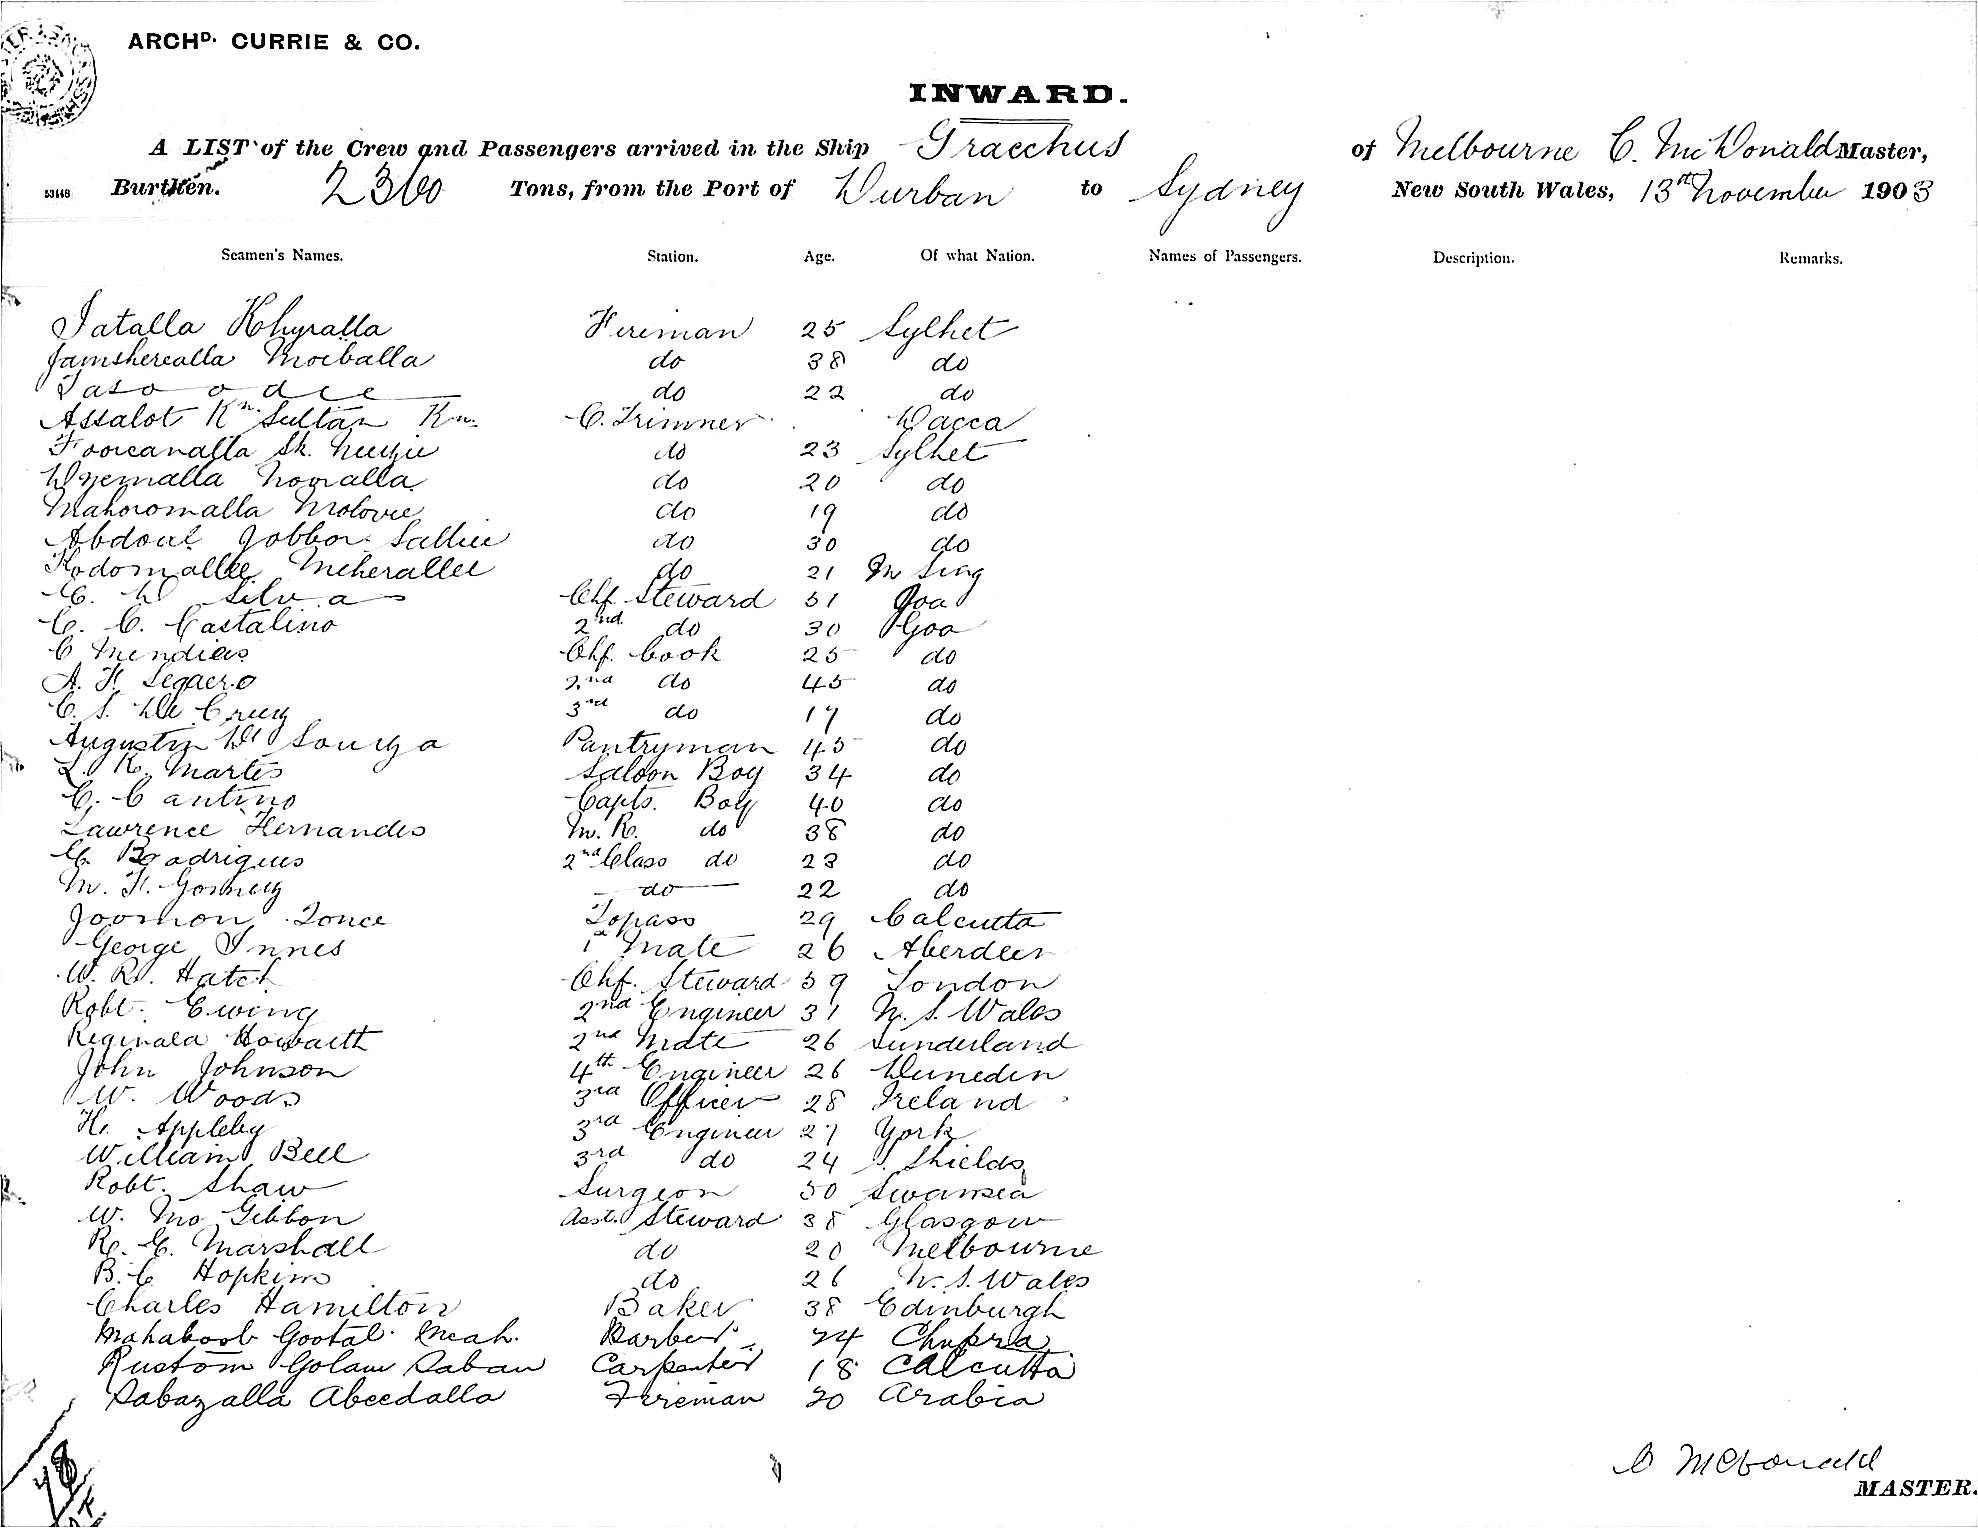 ARCHD. CURRIE & CO.
INWARD.
A LIST of the Crew and Passengers arrived in the Ship Gracchus of Melbourne C. McDonald Master,
53148 Burthen. 2360 Tons, from the Port of Durban to Sydney New South Wales, 13th November 1903
Seamen's Names. Station. Age. Of what Nation. Names of Passengers. Description. Remarks.
Jatalla Khyralla Fireman 25 Sylhet
Jamsherealla Moiballa do 38 do
do 22 do
Assalot Kn. Sultan Kn. C. Trimmer Dacca
Sk. do 23 Sylhet
Wyemalla Nowalla do 20 do
Mahoromalla Molovie do 19 do
Abdoul Jobbor Sallie do 30 do
Kodomallee Meherallee do 21 M Sing
C. D Silva Chf Steward 31 Goa
C. C. Castalino 2nd do 30 Goa
C Mendies Chf. Cook 25 do
A. F. Segaero 2nd do 45 do
C. S. De Cruz 3rd do 17 do
Augustin De Souza Pantryman 45 do
L. R. Martis Saloon Boy 34 do
C. Cantino Capts. Boy 40 do
Lawrence Hernandes M. R. do 38 do
C. Roadrigues 2nd Class do 23 do
M. F. Gomez do 22 do
Joomon Tonce Topass 29 Calcutta
George Innes 1st Mate 26 Aberdeen
W. R. Hatch Chf. Steward 39 London
Robt. Ewing 2nd Engineer 31 N. S. Wales
Reginald Howarth 2nd Mate 26 Sunderland
John Johnson 4th Engineer 26 Dunedin
W. Woods 3rd Officer 28 Ireland
H. Appleby 3rd Engineer 27 York
William Bell 3rd do 24 S. Shields
Robt. Shaw Surgeon 50 Swansea
W. Mc Gibbon Asst. Steward 38 Glasgow
R. G. Marshall do 20 Melbourne
B. C Hopkins do 26 N. S. Wales
Charles Hamilton Baker 38 Edinburgh
Mahaboob Gootal Meah. Barber 24 Chupra
Rustom Golam Saban Carpenter 18 Calcutta
Sabazalla Abeedalla Fireman 20 Arabia
C McDonald
MASTER.